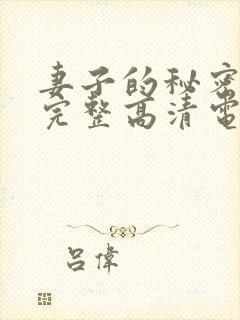 妻子的秘密
完整高清電
吕偉